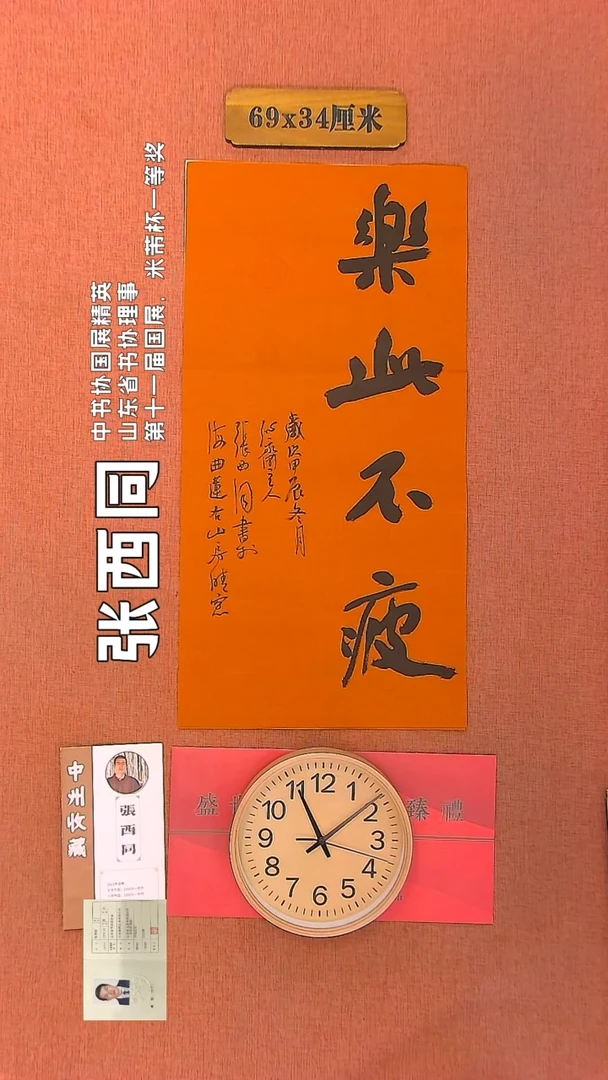 69x34厘米
樂此不疲
歲次甲辰冬月
心齋主人
張西同書於
海曲蓮右山房晴窗
中书协国展精英
山东省书协理事
第十一届国展，米芾杯一等奖
张西同
張西同
盛世
臻禮
12
1
2
3
4
5
6
7
8
9
10
11